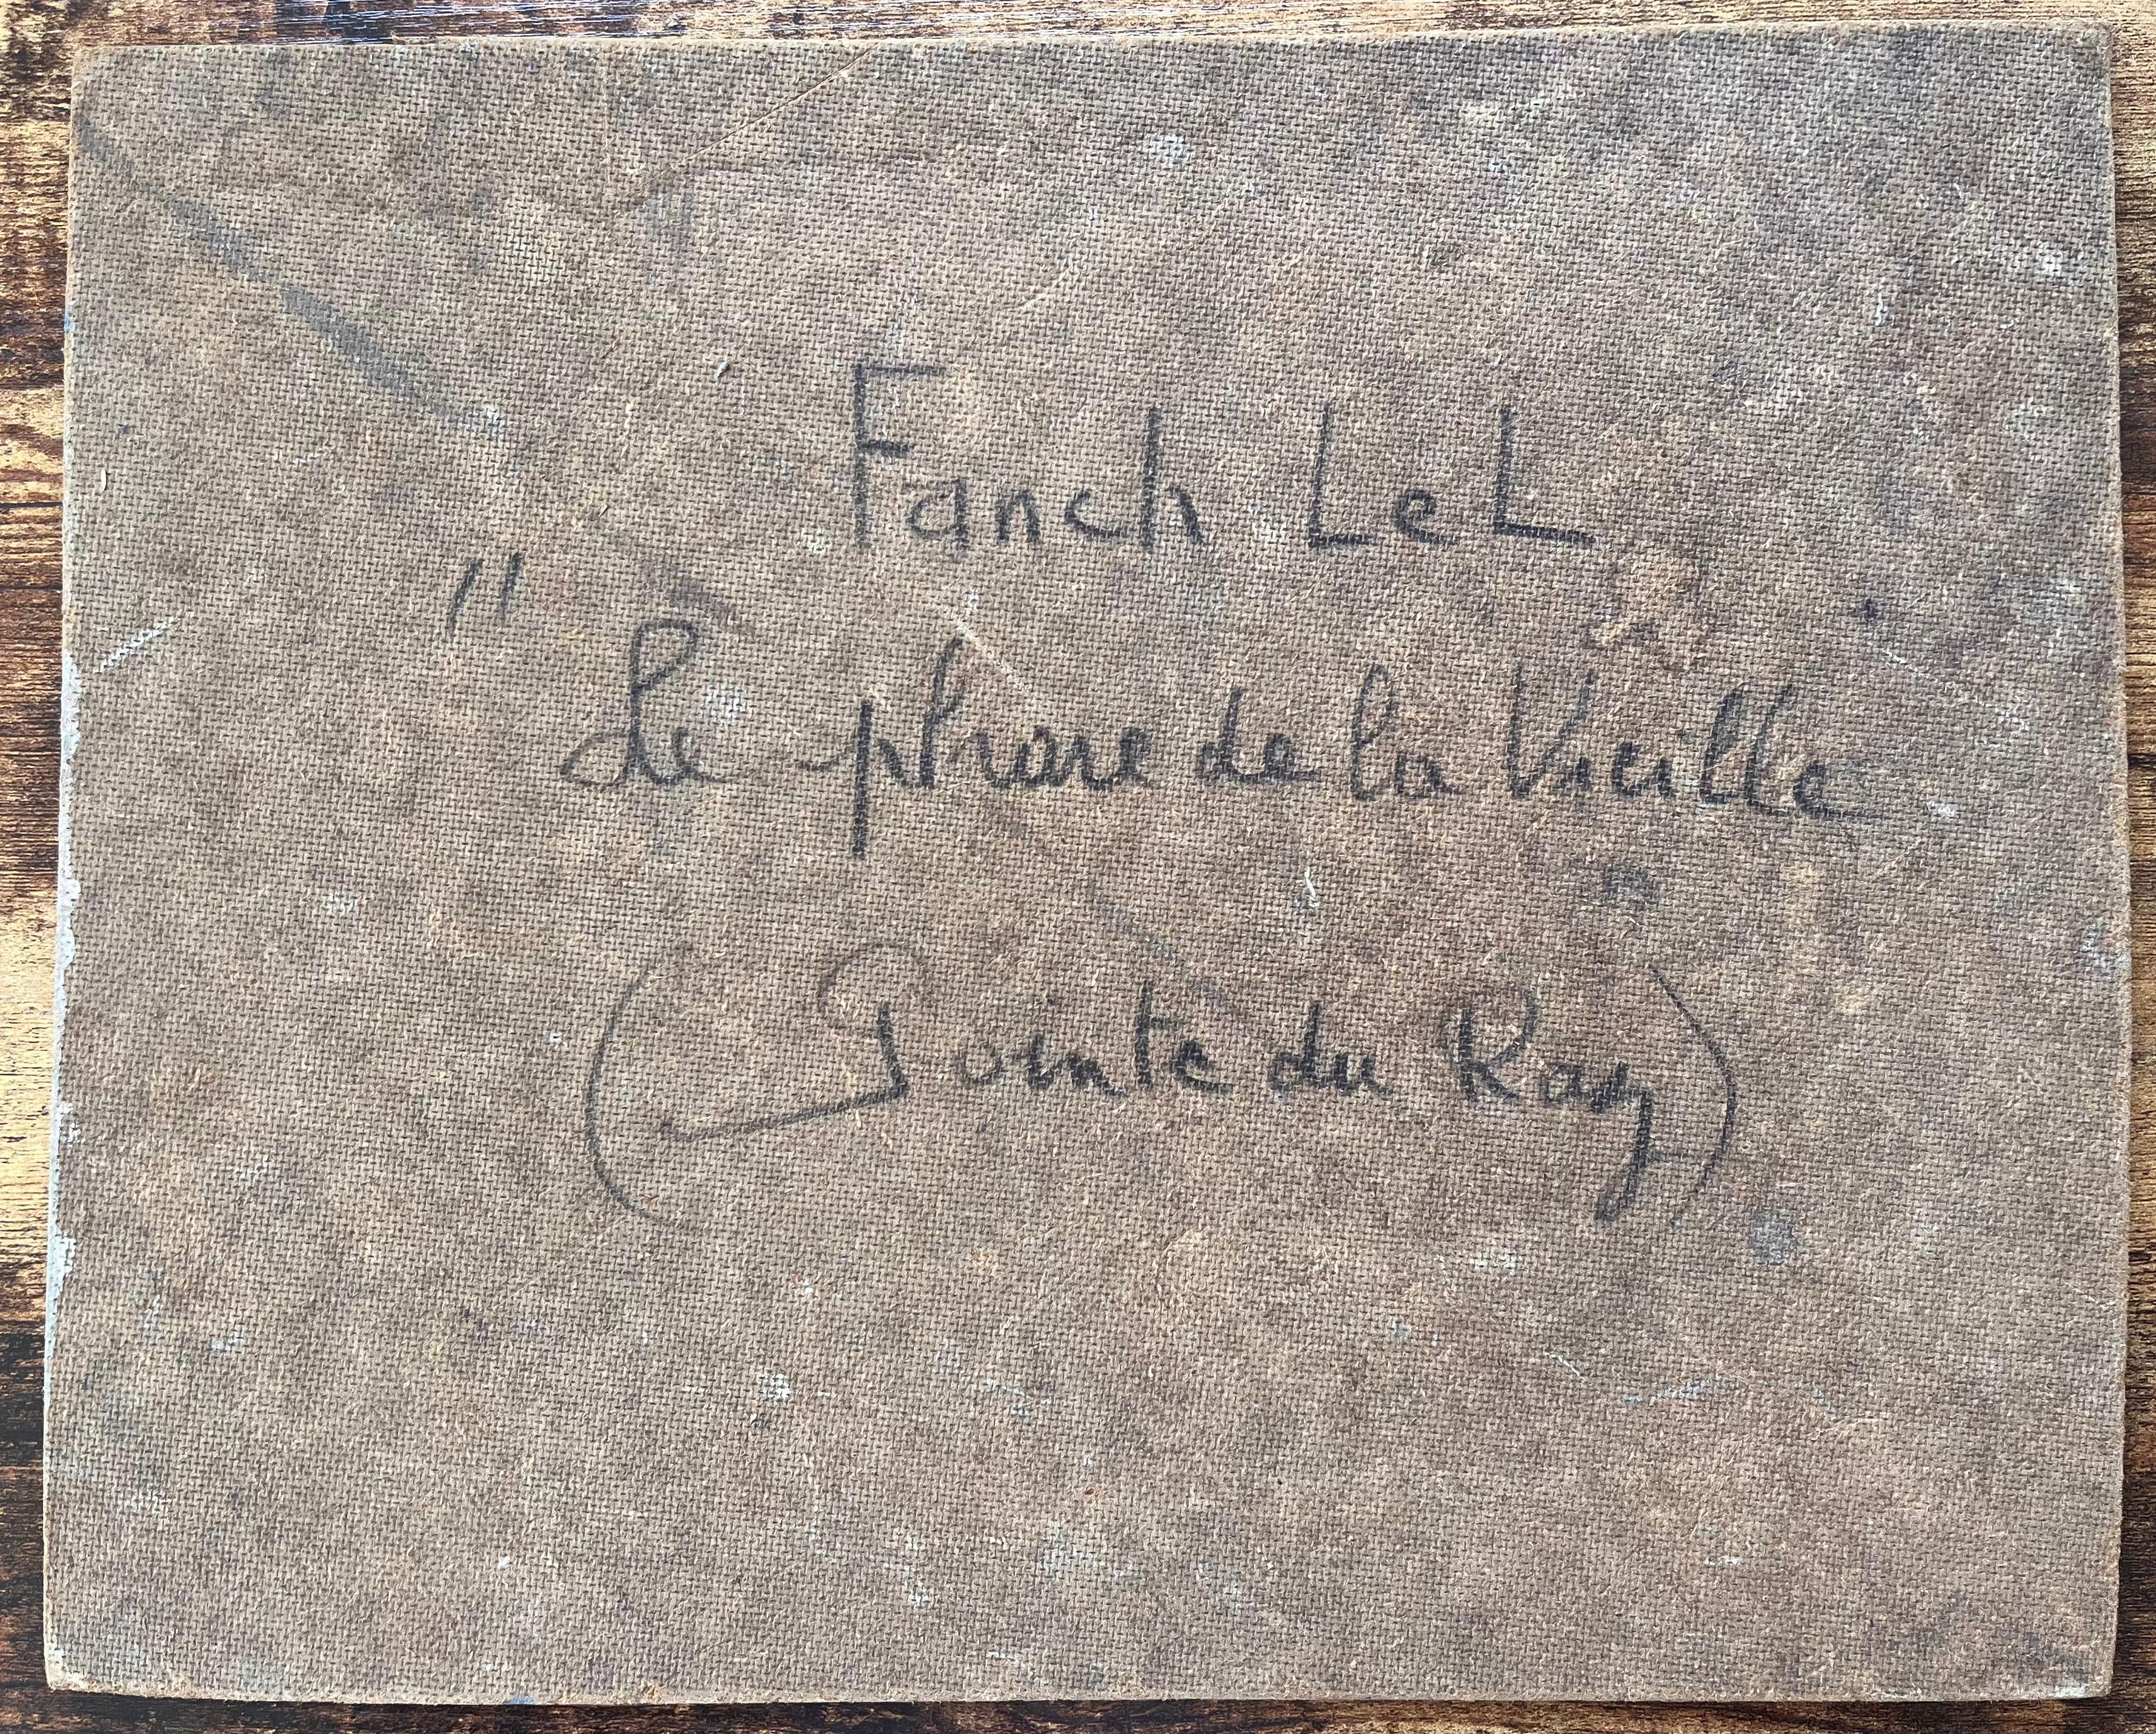 Fanch LeL
" Le phare de la Vieille
(Pointe du Raz)